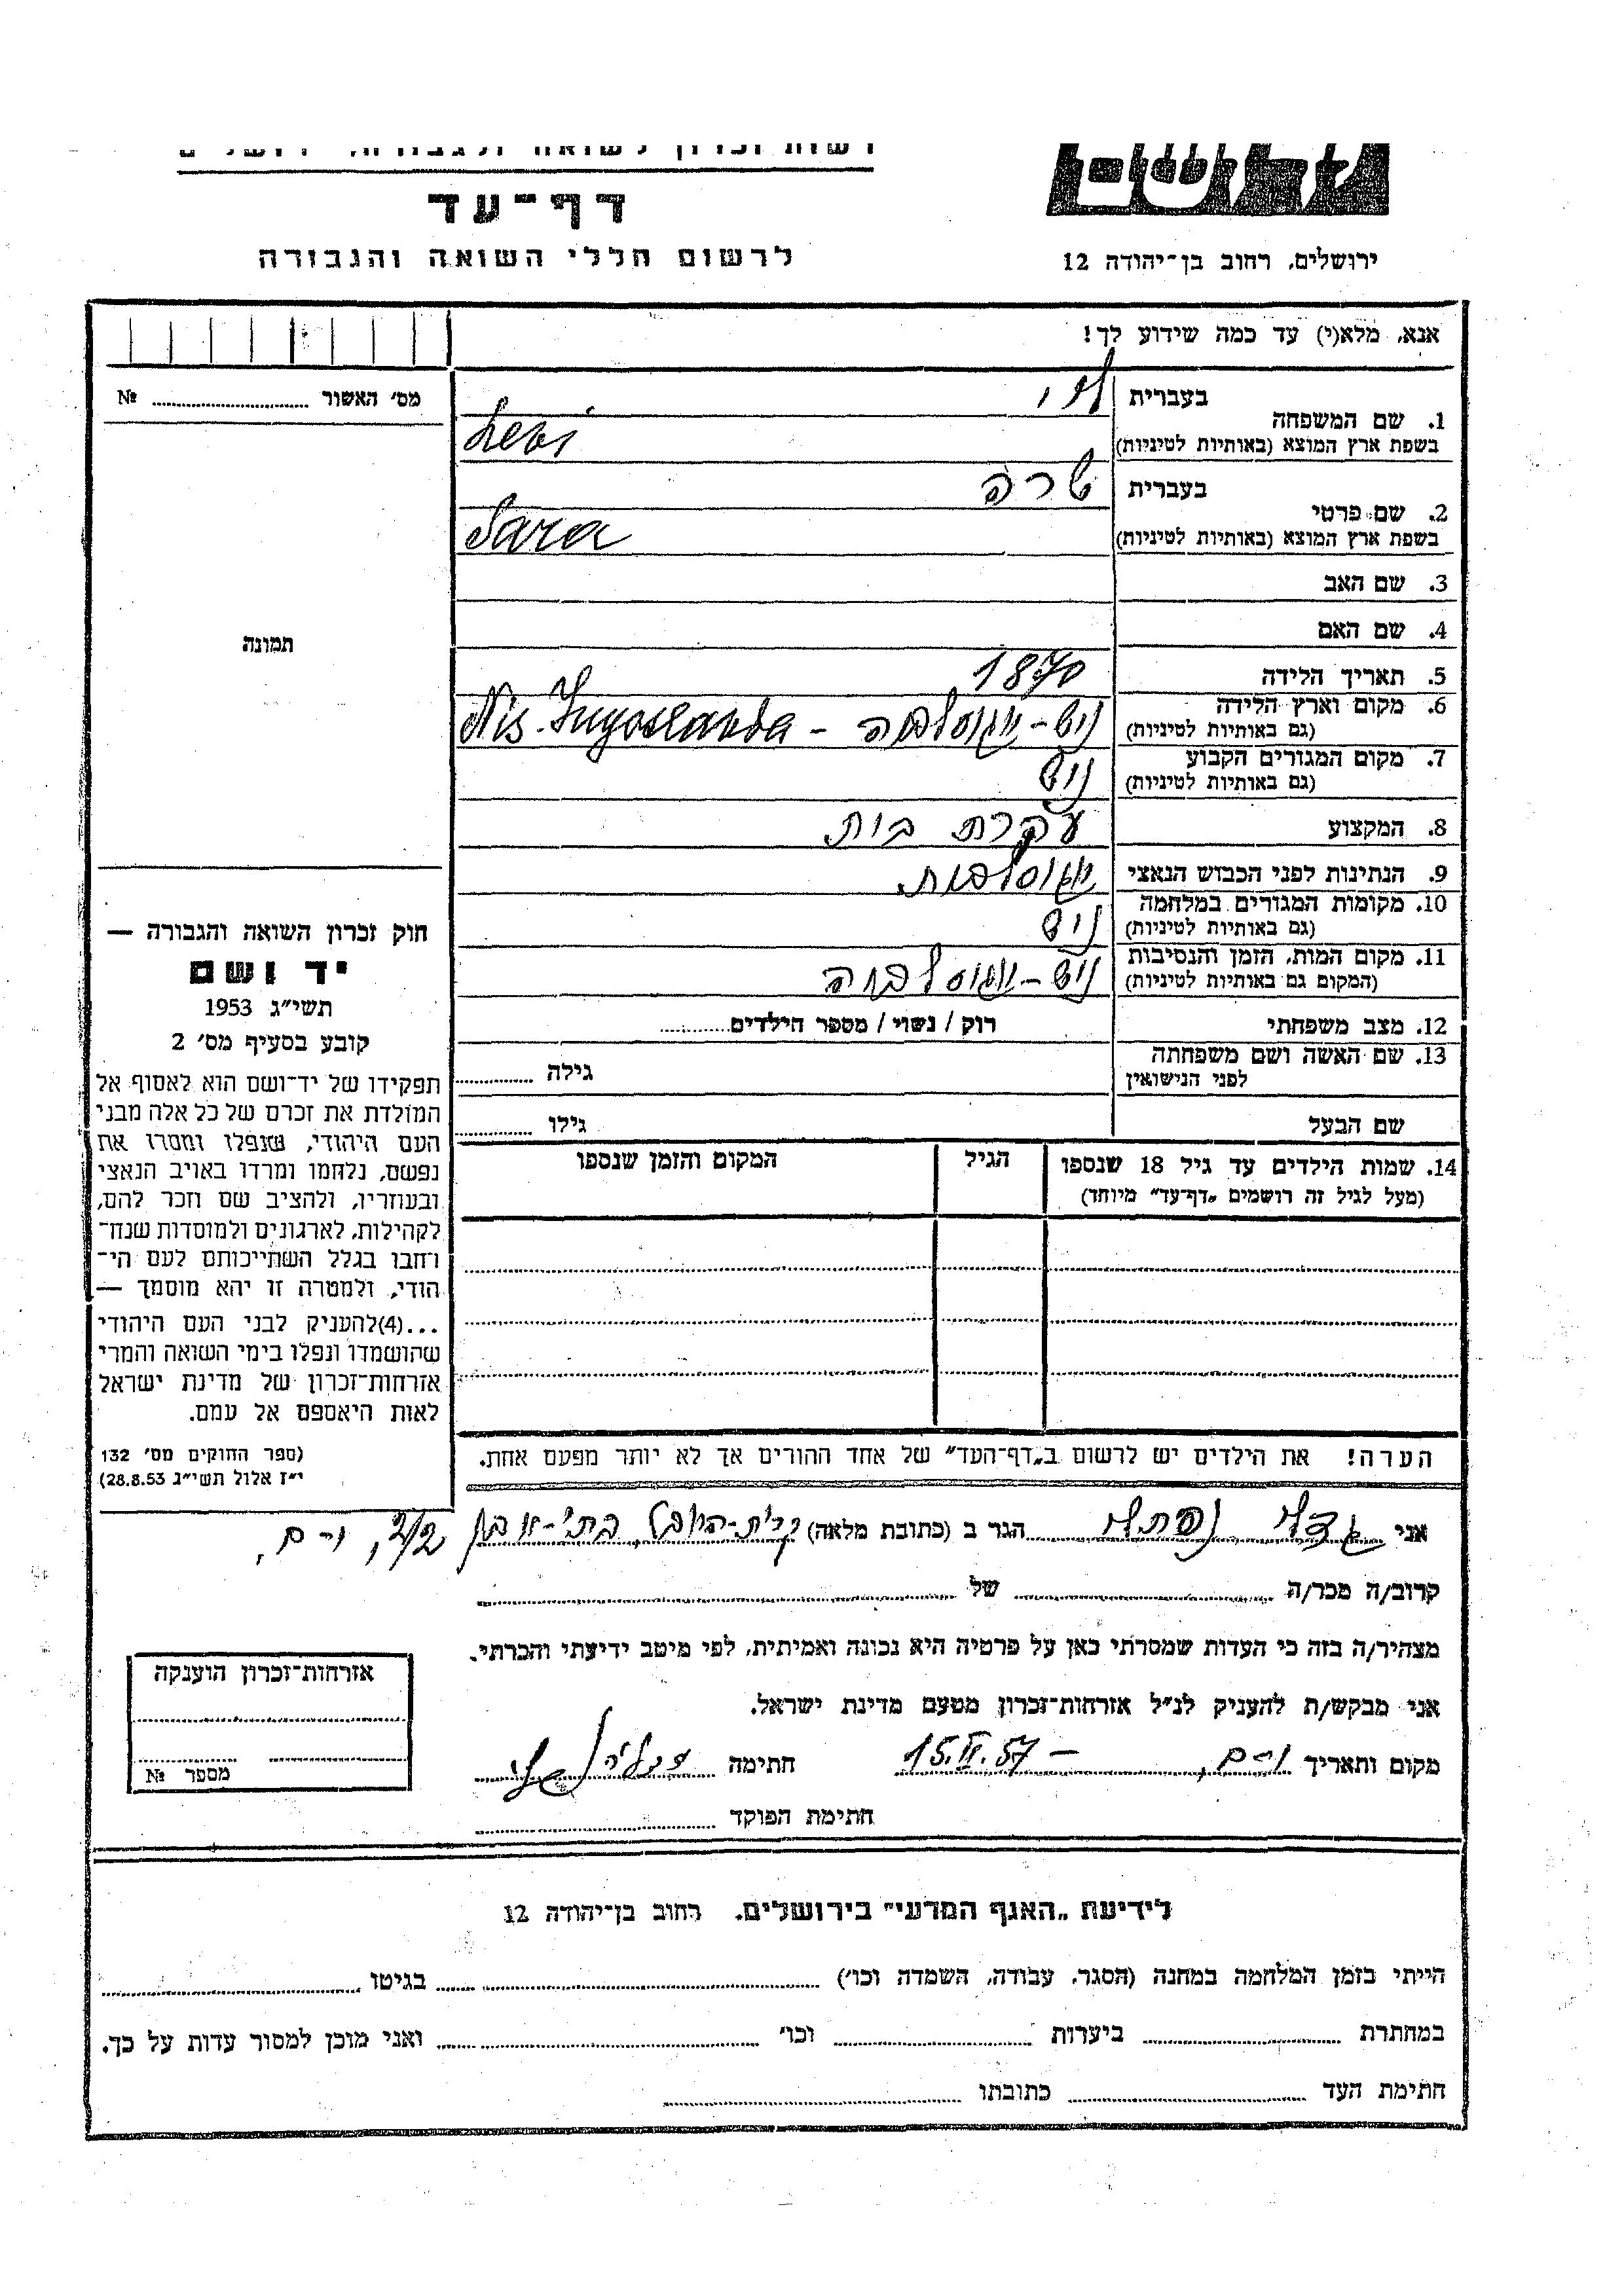 דף־עד
לרשום חללי השואה והגבורה
ירושלים, רחוב בן־יהודה 12
אנא, מלא(י) עד כמה שידוע לך!
מס׳ האשור ........ №
1. שם המשפחה
בעברית לוי
בשפת ארץ המוצא (באותיות לטיניות) Levi
2. שם פרטי
בעברית שרה
בשפת ארץ המוצא (באותיות לטיניות) Sara
3. שם האב
4. שם האם
תמונה
5. תאריך הלידה 1870
6. מקום וארץ הלידה
(גם באותיות לטיניות) ניש - יוגוסלביה - Nis. Jugoslavia
7. מקום המגורים הקבוע
(גם באותיות לטיניות) ניש
8. המקצוע עקרת בית
9. הנתינות לפני הכבוש הנאצי יוגוסלבית
10. מקומות המגורים במלחמה
(גם באותיות לטיניות) ניש
11. מקום המות, הזמן והנסיבות
(המקום גם באותיות לטיניות) ניש - יוגוסלביה
12. מצב משפחתי רוק / נשוי / מספר הילדים........
13. שם האשה ושם משפחתה
לפני הנישואין גילה ........
שם הבעל גילו ........
14. שמות הילדים עד גיל 18 שנספו הגיל המקום והזמן שנספו
(מעל לגיל זה רושמים „דף־עד״ מיוחד)
הערה! את הילדים יש לרשום ב„דף־העד״ של אחד ההורים אך לא יותר מפעם אחת.
חוק זכרון השואה והגבורה —
יד ושם
תשי״ג 1953
קובע בסעיף מס׳ 2
תפקידו של יד־ושם הוא לאסוף אל
המולדת את זכרם של כל אלה מבני
העם היהודי, שנפלו ומסרו את
נפשם, נלחמו ומרדו באויב הנאצי
ובעוזריו, ולהציב שם וזכר להם,
לקהילות, לארגונים ולמוסדות שנח־
רחבו בגלל השתייכותם לעם הי־
הודי, ולמטרה זו יהא מוסמך —
...(4)להעניק לבני העם היהודי
שהושמדו ונפלו בימי השואה והמרי
אזרחות־זכרון של מדינת ישראל
לאות היאספם אל עמם.
(ספר החוקים מס׳ 132
י״ז אלול תשי״ג 28.8.53)
אני הגר ב (כתובת מלאה) קרית-היובל, בתי-
קרוב/ה מכר/ה ........ של ........
מצהיר/ה בזה כי העדות שמסרתי כאן על פרטיה היא נכונה ואמיתית, לפי מיטב ידיעתי והכרתי.
אני מבקש/ת להעניק לנ״ל אזרחות־זכרון מטעם מדינת ישראל.
מקום ותאריך י-ם, 15.IV.57 - חתימה
חתימת הפוקד ........
אזרחות־זכרון הוענקה
מספר №
לידיעת „האגף המדעי״ בירושלים, רחוב בן־יהודה 12
הייתי בזמן המלחמה במחנה (הסגר, עבודה, השמדה וכו׳) ........ בגיטו ........
במחתרת ........ ביערות ........ וכו׳ ........ ואני מוכן למסור עדות על כך.
חתימת העד ........ כתובתו ........